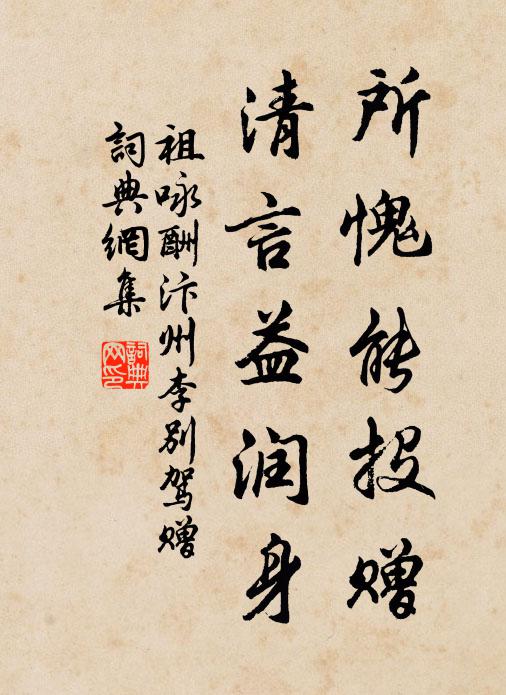 所愧能投赠
清言益润身
祖咏酬汴州李别驾赠
詞典網集
詞典
网印